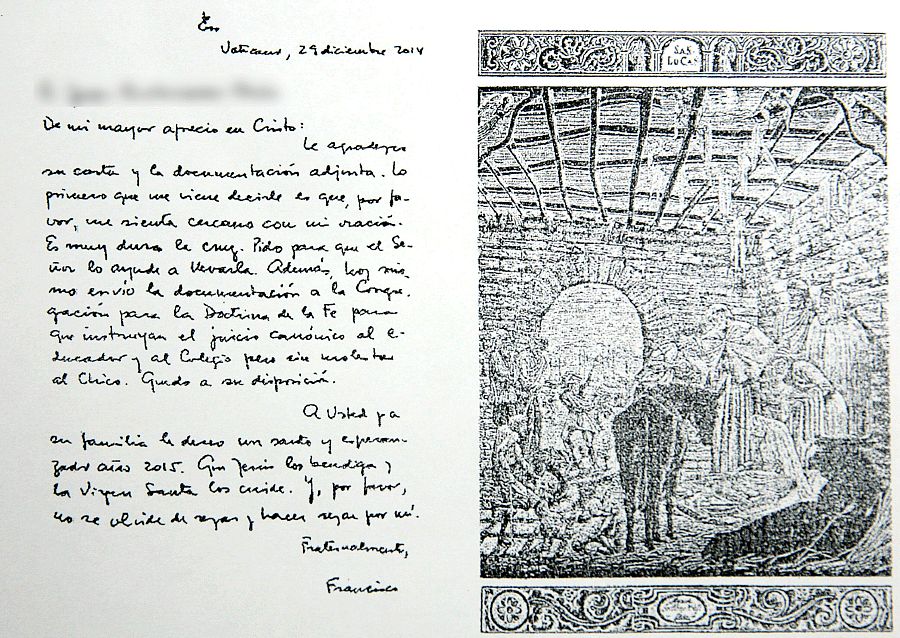 Vaticano, 29 diciembre 2014
De mi mayor aprecio en Cristo:
Le agradezco
su carta y la documentación adjunta. Lo
primero que me viene decirle es que, por fa-
vor, me sienta cercano con mi oración.
Es muy dura la cruz. Pido para que el Se-
ñor lo ayude a llevarla. Además, hoy mis-
mo envío la documentación a la Congre-
gación para la Doctrina de la Fe para
que instruyan el juicio canónico al e-
ducador y al Colegio pero sin molestar
al Chico. Quedo a su disposición.
A Usted y a
su familia le deseo un santo y esperan-
zado año 2015. Que Jesús los bendiga y
la Virgen Santa los cuide. Y, por favor,
no se olvide de rezar y hacer rezar por mí.
Fraternalmente,
Francisco
SAN
LUCAS